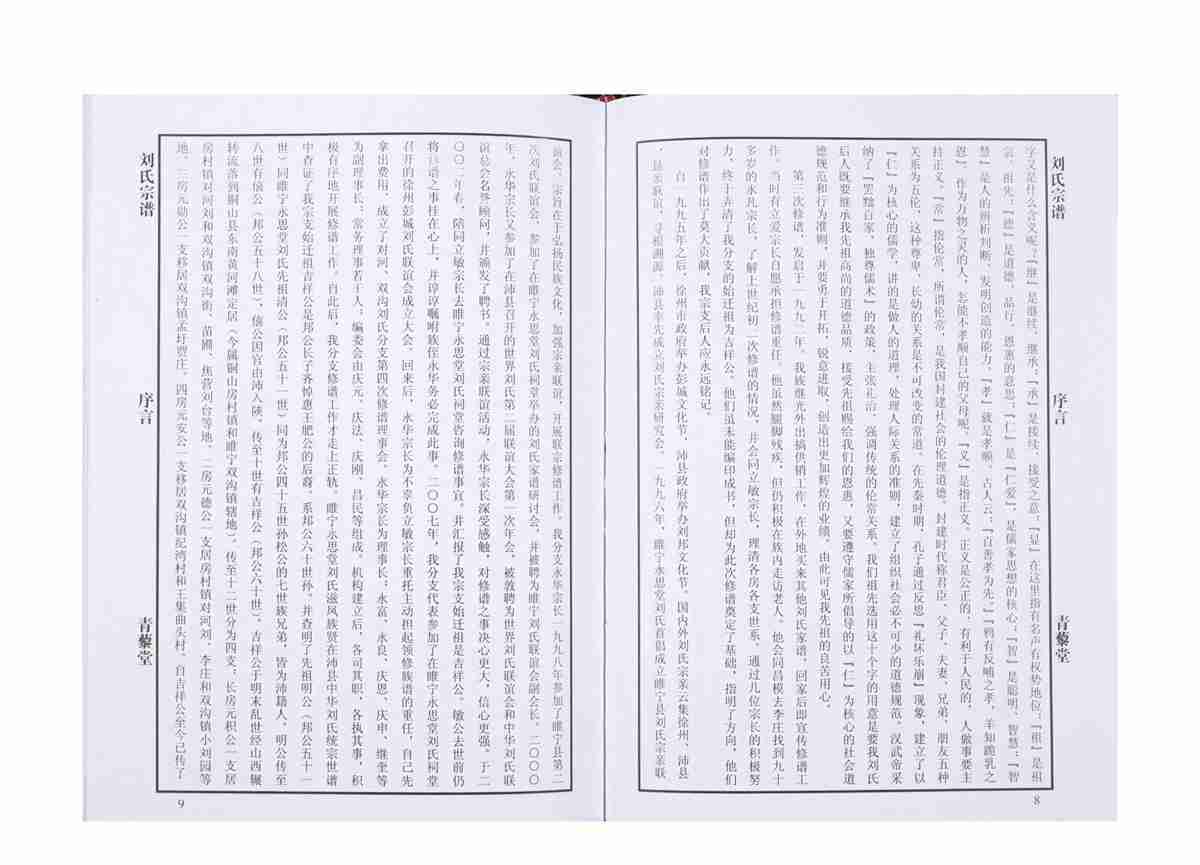 刘氏宗谱
序言
青藜堂
字又是什么含义呢？『继』是继续、继承；『承』是接续、接受之意；『显』在这里指有名声有权势地位；『祖』是祖
宗、祖先；『德』是道德、品行、恩惠的意思；『仁』是『仁爱』，是儒家思想的核心；『智』是聪明、智慧；『智
慧』是人的辨析判断、发明创造的能力，『孝』就是孝顺，古人云：『百善孝为先』『鸦有反哺之孝，羊知跪乳之
恩』，作为万物之灵的人，怎能不孝顺自己的父母呢。『义』是指正义。正义是公正的、有利于人民的，人做事要主
持正义。『常』指伦常，所谓伦常，是我国封建社会的伦理道德。封建时代称君臣、父子、夫妻、兄弟、朋友五种
关系为五伦，这种尊卑、长幼的关系是不可改变的常道。在先秦时期，孔子通过反思『礼坏乐崩』现象，建立了以
『仁』为核心的儒学，讲的是做人的道理，处理人际关系的准则，建立了组织社会必不可少的道德规范。汉武帝采
纳了『罢黜百家，独尊儒术』的政策，主张礼治，强调传统的伦常关系。我们祖先选用这十个字的用意是要我刘氏
后人既要继承我先祖高尚的道德品质，接受先祖赐给我们的恩惠，又要遵守儒家所倡导的以『仁』为核心的社会道
德规范和行为准则，并要勇于开拓，锐意进取，创造出更加辉煌的业绩。由此可见我先祖的良苦用心。
第三次修谱，发启于一九九二年。我族继光外出搞供销工作，在外地买来其他刘氏家谱，回家后即宣传修谱工
作。当时有立爱宗长自愿承担修谱重任。他虽然腿脚残疾，但仍积极在族内走访老人。他会同昌模去李庄找到九十
多岁的永凡宗长，了解上世纪初二次修谱的情况，并会同立敏宗长，理清各房各支世系。通过几位宗长的积极努
力，终于弄清了我分支的始迁祖为吉祥公。他们虽未能编印成书，但却为此次修谱奠定了基础，指明了方向，他们
对修谱作出了莫大贡献，我宗支后人应永远铭记。
自一九九五年之后，徐州市政府举办彭城文化节，沛县政府举办刘邦文化节。国内外刘氏宗亲云集徐州、沛县
，县亲联谊，寻根溯源。沛县率先成立刘氏宗亲研究会。一九九六年，睢宁永思堂刘氏首倡成立睢宁县刘氏宗亲联
8
谊会，宗旨在于弘扬民族文化，加强宗亲联谊，开展联宗修谱工作。我分支永华宗长一九九八年参加了睢宁县第二
次刘氏联谊会，参加了在睢宁永思堂刘氏祠堂举办的刘氏家谱研讨会，并被聘为睢宁刘氏联谊会副会长。二〇〇〇
年，永华宗长又参加了在沛县召开的世界刘氏第二届联谊大会第一次年会，被敦聘为世界刘氏联谊会和中华刘氏联
谊总会名誉顾问，并颁发了聘书。通过宗亲联谊活动，永华宗长深受感触，对修谱之事决心更大，信心更强。于二
〇〇二年春，陪同立敏宗长去睢宁永思堂刘氏祠堂咨询修谱事宜。并汇报了我宗支始迁祖是吉祥公。敏公去世前仍
将该谱之事挂在心上，并谆谆嘱咐族侄永华务必完成此事。二〇〇七年，我分支代表参加了在睢宁永思堂刘氏祠堂
召开的徐州彭城刘氏联谊会成立大会。回来后，永华宗长为不辜负立敏宗长重托主动担起领修族谱的重任，自己先
拿出费用，成立了对河、双沟刘氏分支第四次修谱理事会。永华宗长为理事长；永富、永良、庆恩、庆申、继奎等
为副理事长；常务理事若干人；编委会由庆元、庆法、庆刚、昌民等组成。机构建立后，各司其职，各执其事，积
极有序地开展修谱工作。自此后，我分支修谱工作才走上正轨。睢宁永思堂刘氏滋凤族贤在沛县中华刘氏统宗世谱
中查证了我宗支始迁祖吉祥公是邦公长子齐悼惠王肥公的后裔，系邦公六十世孙。并查明了先祖明公（邦公五十一
世）同睢宁永思堂刘氏先祖清公（邦公五十一世）同为邦公四十五世孙松公的七世族兄弟，皆为沛籍人。明公传至
八世有傣公（邦公五十八世），傣公因官由沛入陕，传至十世有吉祥公（邦公六十世）。吉祥公于明末乱世经山西辗
转流落到铜山县东南黄河滩定居（今属铜山房村镇和睢宁双沟镇辖地）。传至十二世分为四支，长房元积公一支居
房村镇对河刘和双沟镇双沟街、苗圃、焦营刘台等地，二房元德公一支居房村镇对河刘、李庄和双沟镇小刘园等
地，三房元勋公一支移居双沟镇孟圩贾庄，四房元安公一支移居双沟镇纪湾村和王集曲头村。自吉祥公至今已传了
刘氏宗谱
序言
青藜堂
9